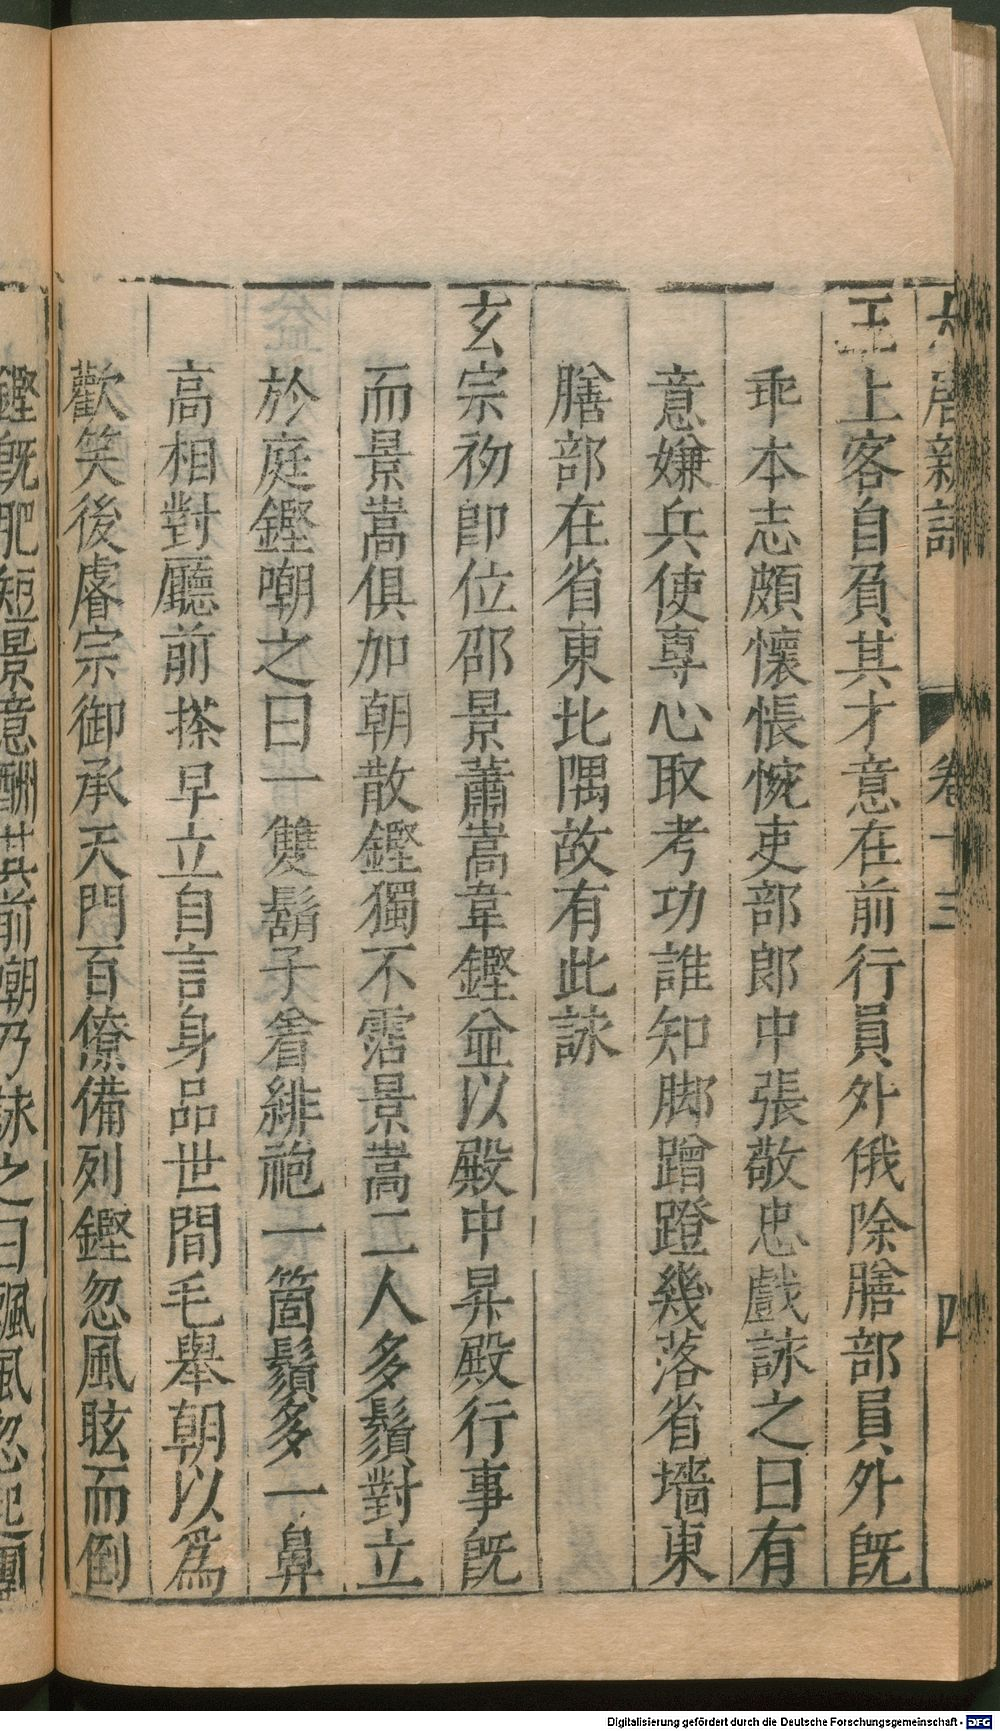 大唐新語 卷十三 四
王上客自負其才意在前行員外俄除膳部員外既
乖本志頗懷悵惋吏部郎中張敬忠戲詠之曰有
意嫌兵使專心取考功誰知脚蹭蹬幾落省墻東
膳部在省東北隅故有此詠
玄宗初即位邵景蕭嵩韋鏗並以殿中昇殿行事既
而景嵩俱加朝散鏗獨不霑景嵩二人多鬚對立
於庭鏗嘲之曰一雙鬍子着緋袍一箇鬚多一鼻
高相對廳前搽早立自言身品世間毛舉朝以爲
歡笑後睿宗御承天門百僚備列鏗忽風眩而倒
鏗既肥短景意酬其前嘲乃詠之曰飄風忽起團
Digitalisierung gefördert durch die Deutsche Forschungsgemeinschaft - DFG